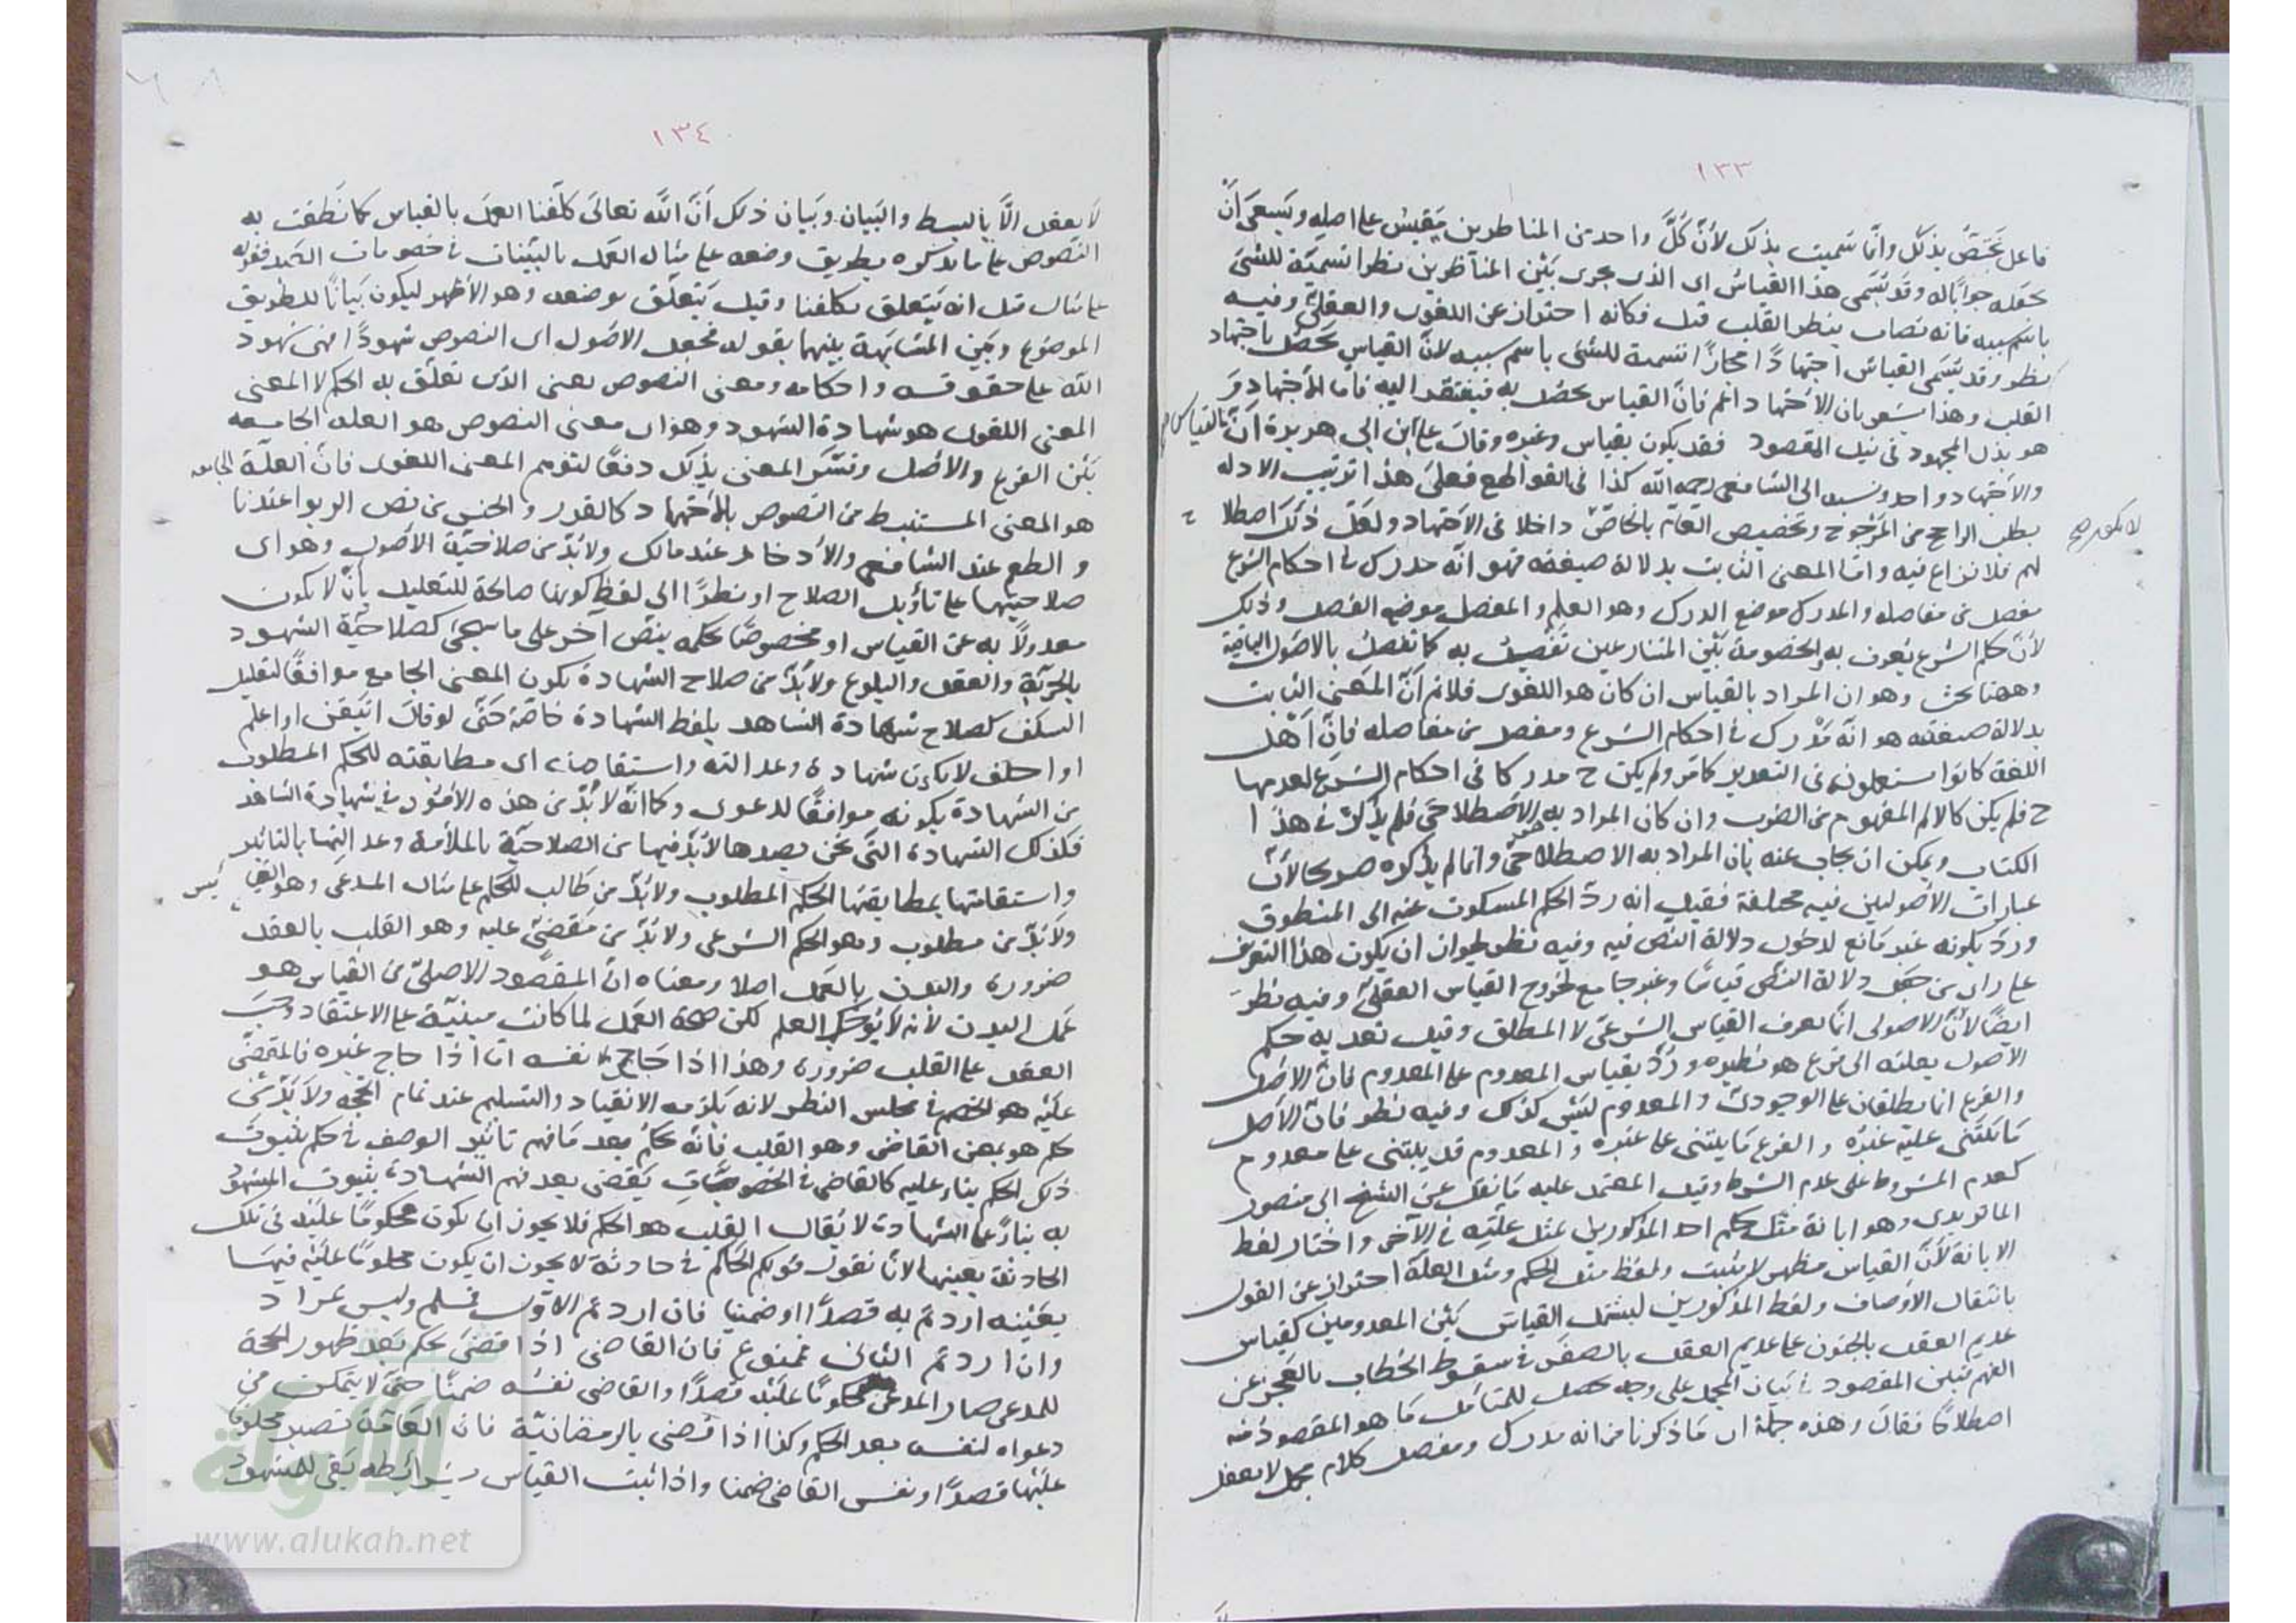 ١٣٣
فاعل يختص بذلك وانما سميت بذلك لأن كل واحد من المناظرين يقيس على اصله ويسعى أن
يجعله جوابا له وقد تسمى هذا القياس اى الذى يجرى بين المناظرين نظرا تسمية للشئ
باسم سببه فانه يصاب بنظر القلب قيل فكانه احتراز عن اللغوى والعقلى وفيه
نظر وقد تسمى القياس اجتهادًا مجازًا تسمية للشئ باسم سببه لان القياس يحصل باجتهاد
القلب وهذا يشعر بان الاجتهاد اعم فان القياس يحصل به فيفتقر اليه فاما الاجتهاد
هو بذل المجهود فى نيل المقصود فقد يكون بقياس وغيره وقال على ابن ابى هريرة ان القياس
والاجتهاد واحد ونسبه الى الشافعى رحمه الله كذا فى القواطع فعلى هذا ترتيب الادلة
بطلب الراجح من المرجوح وتخصيص العام بالخاص داخلا فى الاجتهاد ولعل ذلك اصطلا ح
لهم فلا نزاع فيه واما المعنى الثابت بدلالة صيغته فهو انه مدرك فى احكام الشرع
مفصل من مفاصله والمدرك موضع الدرك وهو العلم والمفصل موضع الفصل وذلك
لان حكم الشرع يعرف به والخصومة بين المتنازعين تفصل به كما تفصل بالاصول الباقية
وههنا بحث وهو ان المراد بالقياس ان كان هو اللغوى فلا نم ان المعنى الثابت
بدلالة صيغته هو انه مدرك فى احكام الشرع ومفصل من مفاصله فان أهل
اللغة كانوا يستعملونه فى التقدير كما مر ولم يكن ح مدركا فى احكام الشرع لعدمها
ح فلم يكن كالالم المفهوم من الضرب وان كان المراد به الاصطلاحى فلم يذكر فى هذا
الكتاب ويمكن ان يجاب عنه بان المراد به الاصطلاحى وانما لم يذكره صريحا لأن
عبارات الاصوليين فيه مختلفة فقيل انه رد الحكم المسكوت عنه الى المنطوق
ورد بكونه غير مانع لدخول دلالة النص فيه وفيه نظر لجواز ان يكون هذا التعريف
على راى من جعل دلالة النص قياسا وغير جامع لخروج القياس العقلى وفيه نظر
ايضًا لأن الاصولى انما يعرف القياس الشرعى لا المطلق وقيل تعدية حكم
الاصول بعلته الى فرع هو نظيره ورد بقياس المعدوم على المعدوم فان الاصل
والفرع انما يطلقان على الوجودى والمعدوم ليس كذلك وفيه نظر فان الأصل
ما يبتنى عليه غيره والفرع ما يبتنى على غيره والمعدوم قد يبتنى على معدوم
كعدم المشروط على عدم الشرط وقيل المعتمد عليه ما نقل عن الشيخ ابى منصور
الماتريدى وهو ابانة مثل حكم احد المذكورين بمثل علته فى الآخر واختار لفظ
الابانة لأن القياس مظهر لا مثبت ولفظ مثل الحكم ومثل العلة احتراز عن القول
بانتقال الأوصاف ولفظ المذكورين ليشمل القياس بين المعدومين كقياس
عديم العقل بالجنون على عديم العقل بالصغر فى سقوط الخطاب بالعجز عن
الفهم فبين المقصود فى بيان المجمل على وجه يحصل للمتأمل ما هو المقصود منه
اصطلاحًا فقال وهذه جملة اى ما ذكرنا من انه مدرك ومفصل كلام مجمل لا يعقل
١٣٤
لا يعقل الا بالبسط والبيان وبيان ذلك ان الله تعالى كلفنا العمل بالقياس كما نطقت به
النصوص على ما يذكره بطريق وضعه على مثال العمل بالبينات فى خصومات العباد فقوله
على مثال قيل انه يتعلق بكلفنا وقيل يتعلق بوضعه وهو الأظهر ليكون بيانًا للطريق
الموضوع وبين المشابهة بينهما بقوله فجعل الاصول اى النصوص شهودًا فهى شهود
الله على حقوقه واحكامه ومعنى النصوص يعنى الذى تعلق به الحكم لا المعنى
المعنى اللغوى هو شهادة الشهود وهو اى معنى النصوص هو العلة الجامعة
بين الفرع والاصل وفسر المعنى بذلك دفعًا لتوهم المعنى اللغوى فان العلة الجامعة
هو المعنى المستنبط من النصوص بالاجتهاد كالقدر والجنس من نص الربوا عندنا
والطعم عند الشافعى والادخار عند مالك ولا بد من صلاحية الأصول وهو اى
صلاحيتها على تأويل الصلاح او نظرًا الى لفظ كونها صالحة للتعليل بأن لا يكون
معدولًا به عن القياس او مخصوصًا بحكمه بنص آخر على ما سيجئ كصلاحية الشهود
بالحرية والعقل والبلوغ ولا بد من صلاح الشهادة بكون المعنى الجامع موافقًا لتعليل
السلف كصلاح شهادة الشاهد بلفظ الشهادة خاصة حتى لو قال اتيقن او اعلم
او احلف لا يكون شهادة وعدالته واستقامته اى مطابقته للحكم المطلوب
من الشهادة بكونه موافقًا للدعوى وكما انه لا بد من هذه الأمور فى شهادة الشاهد
فكذلك الشهادة التى نحن بصددها لا بد فيها من الصلاحية بالملائمة وعدالتها بالتاثير
واستقامتها بمطابقتها الحكم المطلوب ولا بد من طالب للحكم على مثال المدعى وهو القايس
ولا بد من مطلوب وهو الحكم الشرعى ولا بد من مقضى عليه وهو القلب بالعقد
ضرورة والبدن بالعمل اصلا ومعناه ان المقصود الاصلى من القياس هو
عمل البدن لأنه لا يوجب العلم لكن صحة العمل لما كانت مبنية على الاعتقاد وجب
العقد على القلب ضرورة وهذا اذا حاج نفسه اما اذا حاج غيره فالمقضى
عليه هو الخصم فى مجلس النظر لانه يلزمه الانقياد والتسليم عند تمام الحجة ولا بد من
حكم هو بمعنى القاضى وهو القلب فانه يحكم بعد ما فهم تاثير الوصف فى حكم بثبوت
ذلك الحكم بناء عليه كالقاضى فى الخصومات يقضى بعد فهم الشهادة بثبوت المشهود
به بناءً على الشهادة لا يقال القلب هو الحكم فلا يجوز ان يكون محكومًا عليه فى تلك
الحادثة بعينها لانا نقول قولكم الحاكم فى حادثة لا يجوز ان يكون محكومًا عليه فيها
بعينه اردتم به قصدًا او ضمنيا فان اردتم الاول فمسلم وليس بمراد
وان اردتم الثانى فممنوع فان القاضى اذا قضى بحكم بعد ظهور الحجة
للمدعى صار المدعى محكومًا عليه قصدًا والقاضى نفسه ضمنًا حتى لا يتمكن من
دعواه لنفسه بعد الحكم وكذا اذا قضى بالرمضانية فان العامة تصير محكومًا
عليها قصدًا ونفس القاضى ضمنا واذا ثبت القياس بشرائطه بقى للمشهود
www.alukah.net